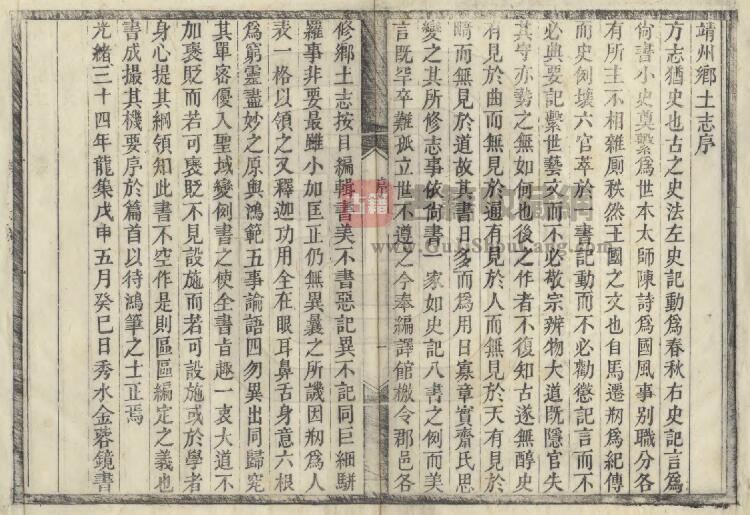 靖州鄉土志序
方志猶史也古之史法左史記動為春秋右史記言為
尚書小史奠繫為世本太師陳詩為國風事別職分各
有所主不相雜厠秩然王國之文也自馬遷剏為紀傳
而史例壞六官萃於一書記動而不必勸懲記言而不
必典要記繫世藝文而不必敬宗辨物大道既隱官失
其守亦勢之無如何也後之作者不復知古遂無醇史
有見於曲而無見於通有見於人而無見於天有見於
睛而無見於道故其書日多而為用日寡章實齋氏思
變之其所修志事依尚書一家如史記八書之例而美
言既卒卒難孤立世不遵之今奉編譯館檄令郡邑各
序
一
修鄉土志按目編輯書美不書惡記異不記同巨細駢
羅事非要最雖小加匡正仍無異曩之所譏因剏為人
表一格以領之又釋迦功用全在眼耳鼻舌身意六根
為窮靈盡妙之原與鴻範五事論語四勿異出同歸究
其單密優入聖域變例書之使全書旨趣一衷大道不
加褒貶而若可褒貶不見設施而若可設施或於學者
身心提其綱領知此書不空作是則區區編定之義也
書成撮其機要序於篇首以待鴻筆之士正焉
光緒三十四年龍集戊申五月癸巳日秀水金蓉鏡書
古籍
古籍收藏網
www.GuJiShouCang.com